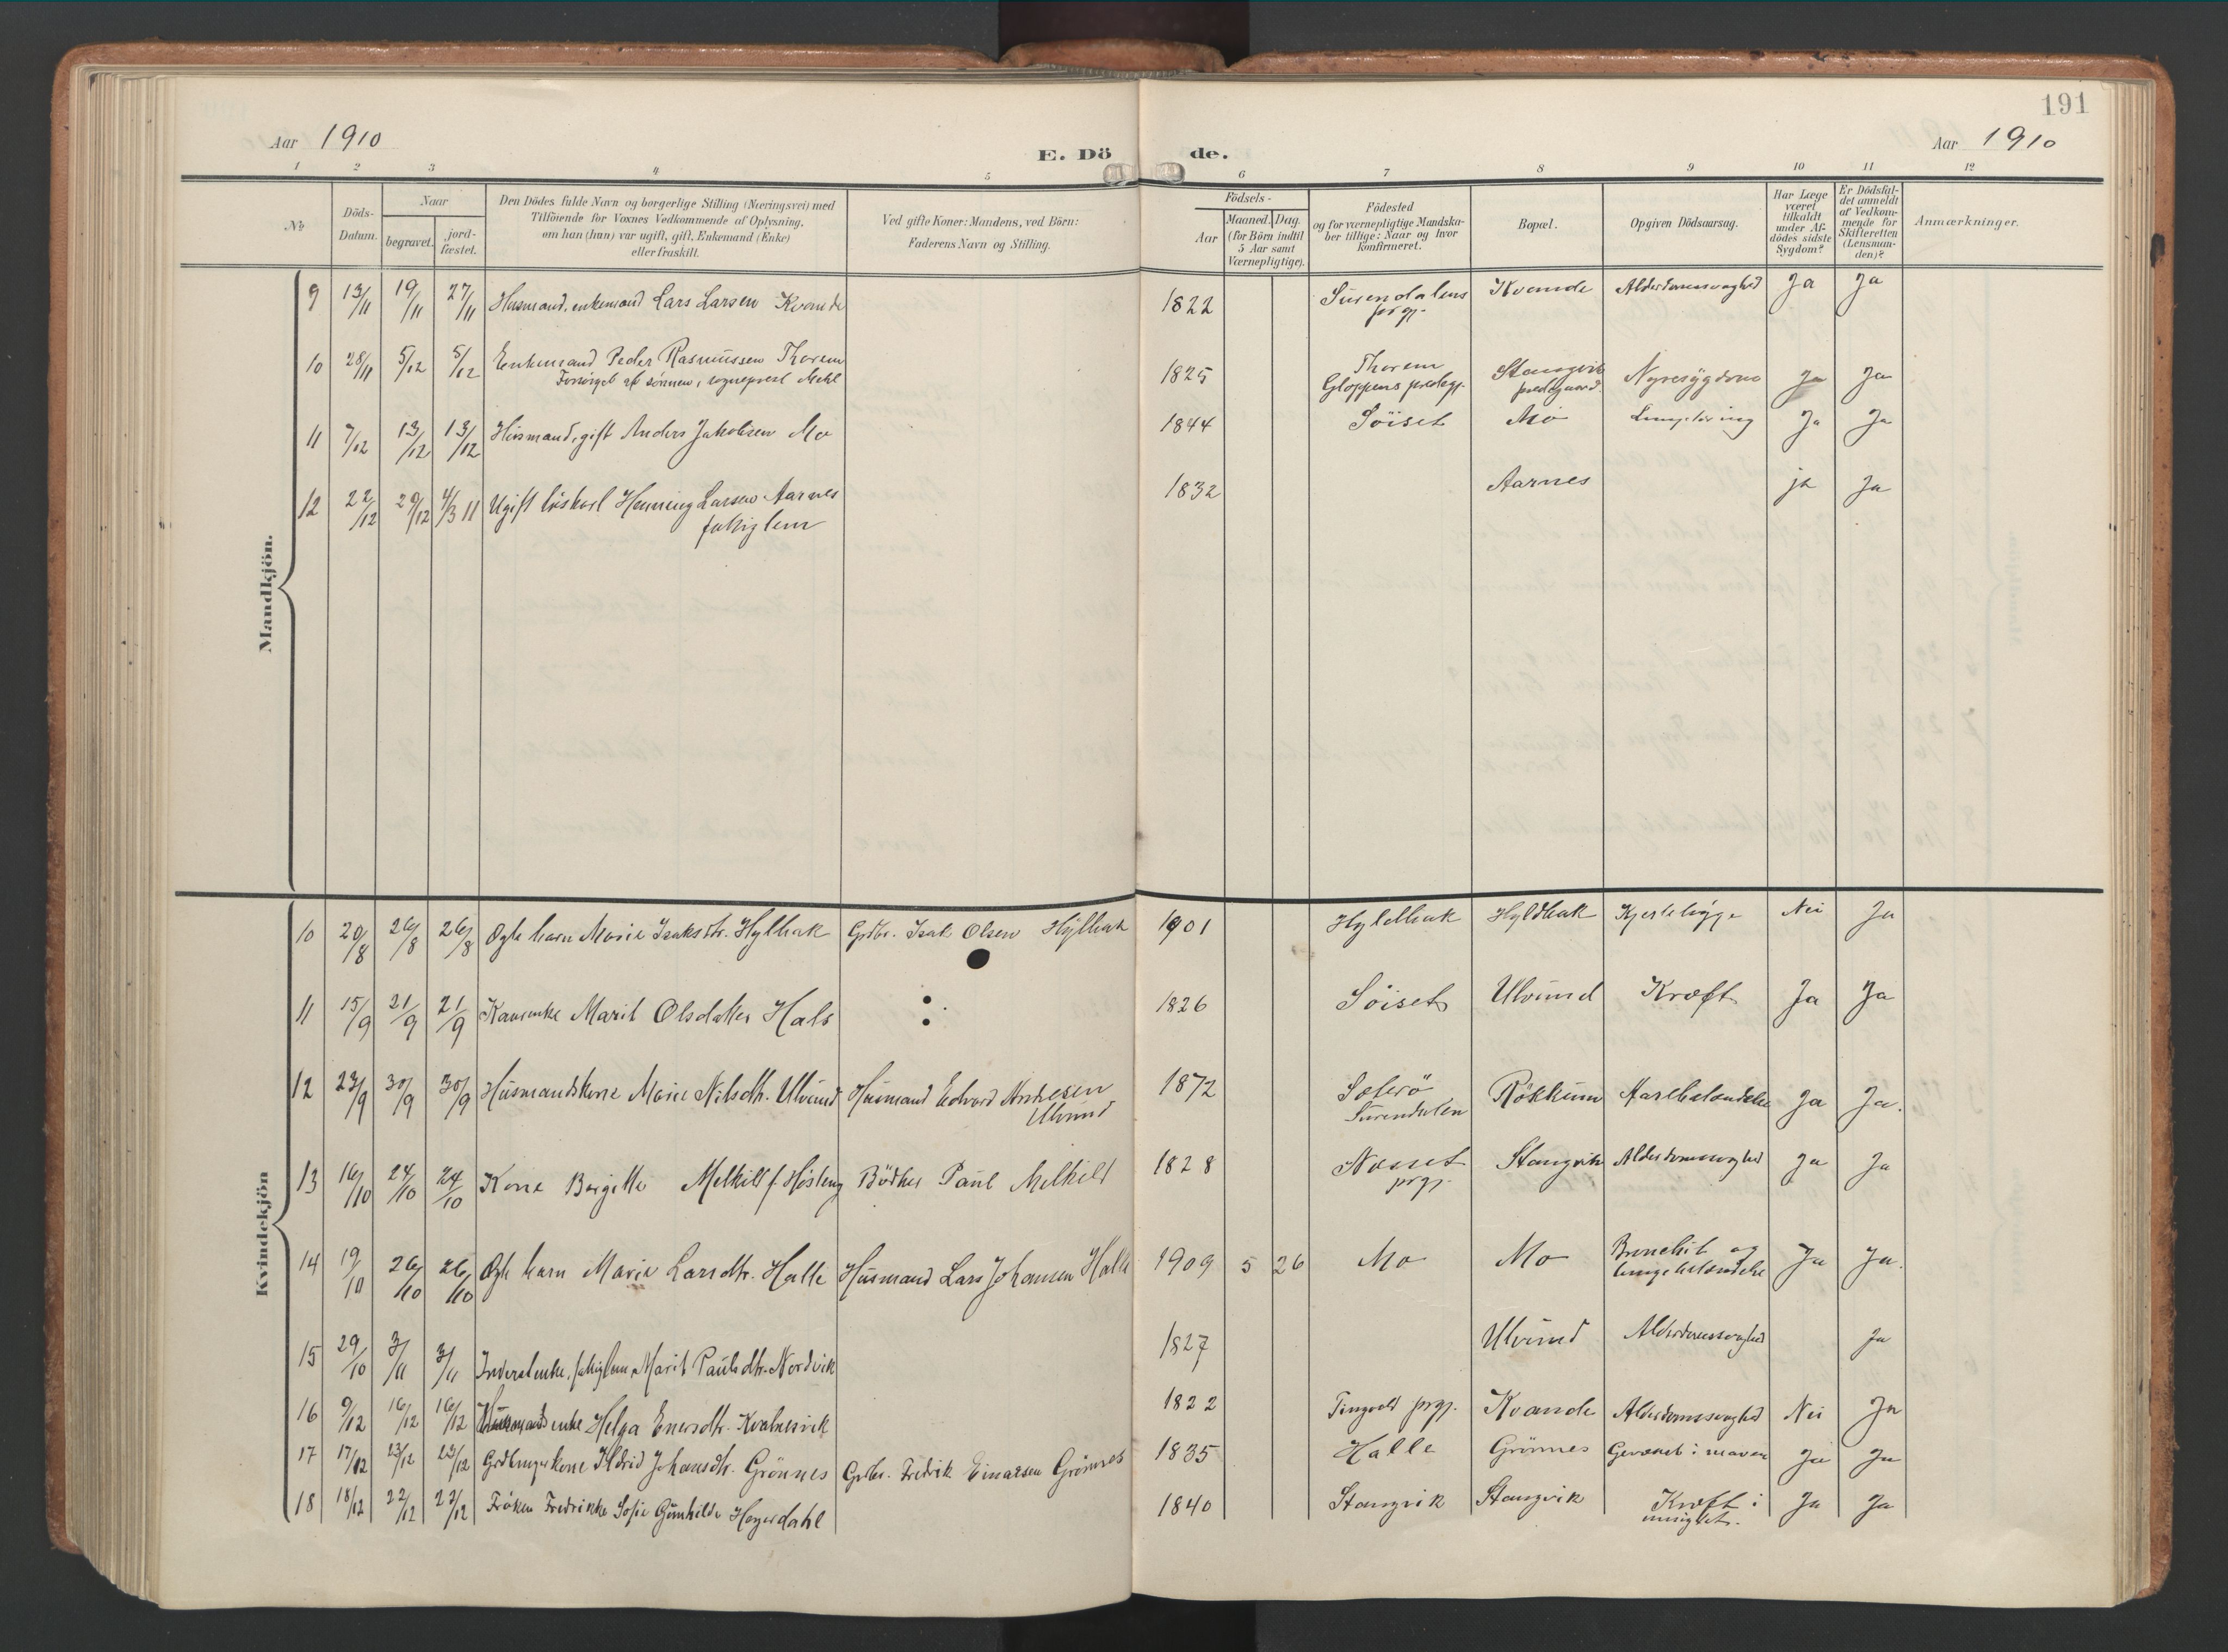 191
Aar 1910
E. Dö de.
Aar 1910
1 2 3 4 5 6 7 8 9 10 11 12
No
Döds-Datum.
Naar
begravet.
jord-fæstet.
Den Dödes fulde Navn og borgerlige Stilling (Næringsvei) med
Tilföiende for Voxnes Vedkommende af Oplysning,
om han (hun) var ugift, gift, Enkemand (Enke)
eller fraskilt.
Ved gifte Koner: Mandens, ved Börn:
Faderens Navn og Stilling.
Födsels-
Aar
Maaned. Dag.
(for Börn indtil
5 Aar samt
Værnepligtige).
Födested
og for værnepligtige Mandska-
ber tillige: Naar og hvor
konfirmeret.
Bopæl.
Opgiven Dödsaarsag.
Har Læge
været
tilkaldt
under Af-
dödes sidste
Sygdom?
Er Dödsfal-
det anmeldt
af Vedkom-
mende for
Skifteretten
(Lensman-
den)?
Anmærkninger.
Mandkjön.
9 13/11 19/11 27/11 Husmand, enkemand Lars Larsen Kvande 1822 Surendalens prgj. Kvande Alderdomssvaghed Ja Ja
10 28/11 5/12 5/12 Enkemand Peder Rasmussen Thorem
Forsörget af sönnen, sogneprest Mehl 1825 Thorem
Gloppens prestgj. Stangvik
prestegaard. Nyresygdom Ja Ja
11 7/12 13/12 13/12 Husmand, gift Anders Jakobsen Mo 1844 Söiset Mo Lungetæring Ja Ja
12 22/12 29/12 4/3 11 Ugift löskarl Henning Larsen Aarnes
fattiglem 1832 Aarnes ja Ja
Kvindekjön
10 20/8 26/8 26/8 Ægte barn Marie Isaksdtr. Hylbak Grdbr. Isak Olsen Hylbak 1901 Hyldbak Hyldbak Nei Ja
11 15/9 21/9 21/9 Kaarenke Marit Olsdatter Hals : 1826 Söiset Ulvund Kræft Ja Ja
12 23/9 30/9 30/9 Husmandskone Marie Nilsdtr. Ulvund Husmand Edvard Andresen
Ulvund 1872 Sæterö
Surendalen Rökkum Aarebetændelse Ja Ja.
13 16/10 24/10 24/10 Kone Birgitte Melkild f. Bödker Paul Melkild 1828 Nesset
prgj. Stangvik Alderdomssvaghed Ja Ja
14 19/10 26/10 26/10 Ægte barn Marie Larsdtr. Halle Husmand Lars Johansen Halle 1909 5 26 Mo Mo Bronchit og
lungebetændelse Ja Ja.
15 29/10 3/11 3/11 Inderstenke, fattiglem, Marit Paulsdtr. Nordvik 1827 Ulvund Alderdomssvaghed Ja
16 9/12 16/12 16/12 Husmandsenke Helga Enersdtr. Kvalnesvik 1822 Tingvold prgj. Kvande Alderdomssvaghed Nei Ja
17 17/12 23/12 23/12 Grdbrugerkone Ildrid Johansdtr. Grönnes Grdbr. Fredrik Einarsen Grönnes 1835 Halle Grönnes Gevækst i maven Ja Ja
18 18/12 22/12 22/12 Fröken Fredrikke Sofie Gunhilde Heyerdahl 1840 Stangvik Stangvik Kræft i
ansigtet. Ja Ja